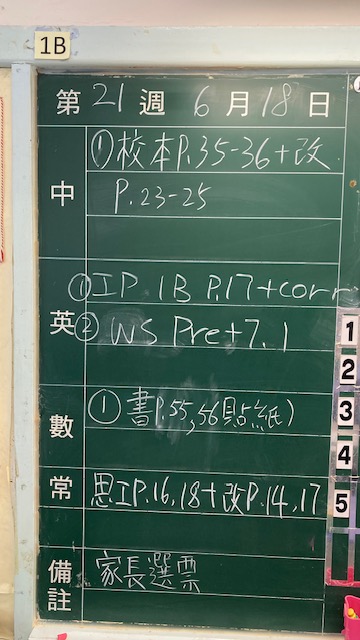 1B
第 21 週 6 月 18 日
中 ①校本P.35-36+改
P.23-25
英 ①IP 1B P.17+corr
② WS Pre+7.1
數 ①書P.55,56貼紙)
常 思工P.16,18+改P.14,17
備註 家長選票
1
2
3
4
5